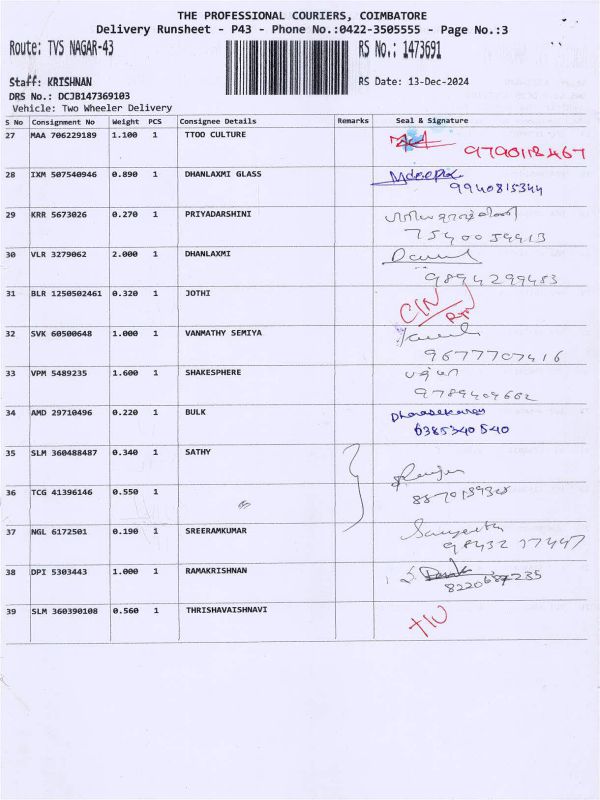 THE PROFESSIONAL COURIERS, COIMBATORE
Delivery Runsheet - P43 - Phone No.:0422-3505555 - Page No.:3
Route: TVS NAGAR-43 RS No.: 1473691
Staff: KRISHNAN RS Date: 13-Dec-2024
DRS No.: DCJB147369103
Vehicle: Two Wheeler Delivery
S No Consignment No Weight PCS Consignee Details Remarks Seal & Signature
27 MAA 706229189 1.100 1 TTOO CULTURE
9790118467
28 IXM 507540946 0.890 1 DHANLAXMI GLASS
9940815344
29 KRR 5673026 0.270 1 PRIYADARSHINI
7540059913
30 VLR 3279062 2.000 1 DHANLAXMI
9894299453
31 BLR 1250502461 0.320 1 JOTHI
CIN
RT
32 SVK 60500648 1.000 1 VANMATHY SEMIYA
9677707416
33 VPM 5489235 1.600 1 SHAKESPHERE
9789409662
34 AMD 29710496 0.220 1 BULK Dhanasekaran
6385340540
35 SLM 360488487 0.340 1 SATHY
36 TCG 41396146 0.550 1
37 NGL 6172501 0.190 1 SREERAMKUMAR Sangeetha
98432 17447
38 DPI 5303443 1.000 1 RAMAKRISHNAN
8220687235
39 SLM 360390108 0.560 1 THRISHAVAISHNAVI